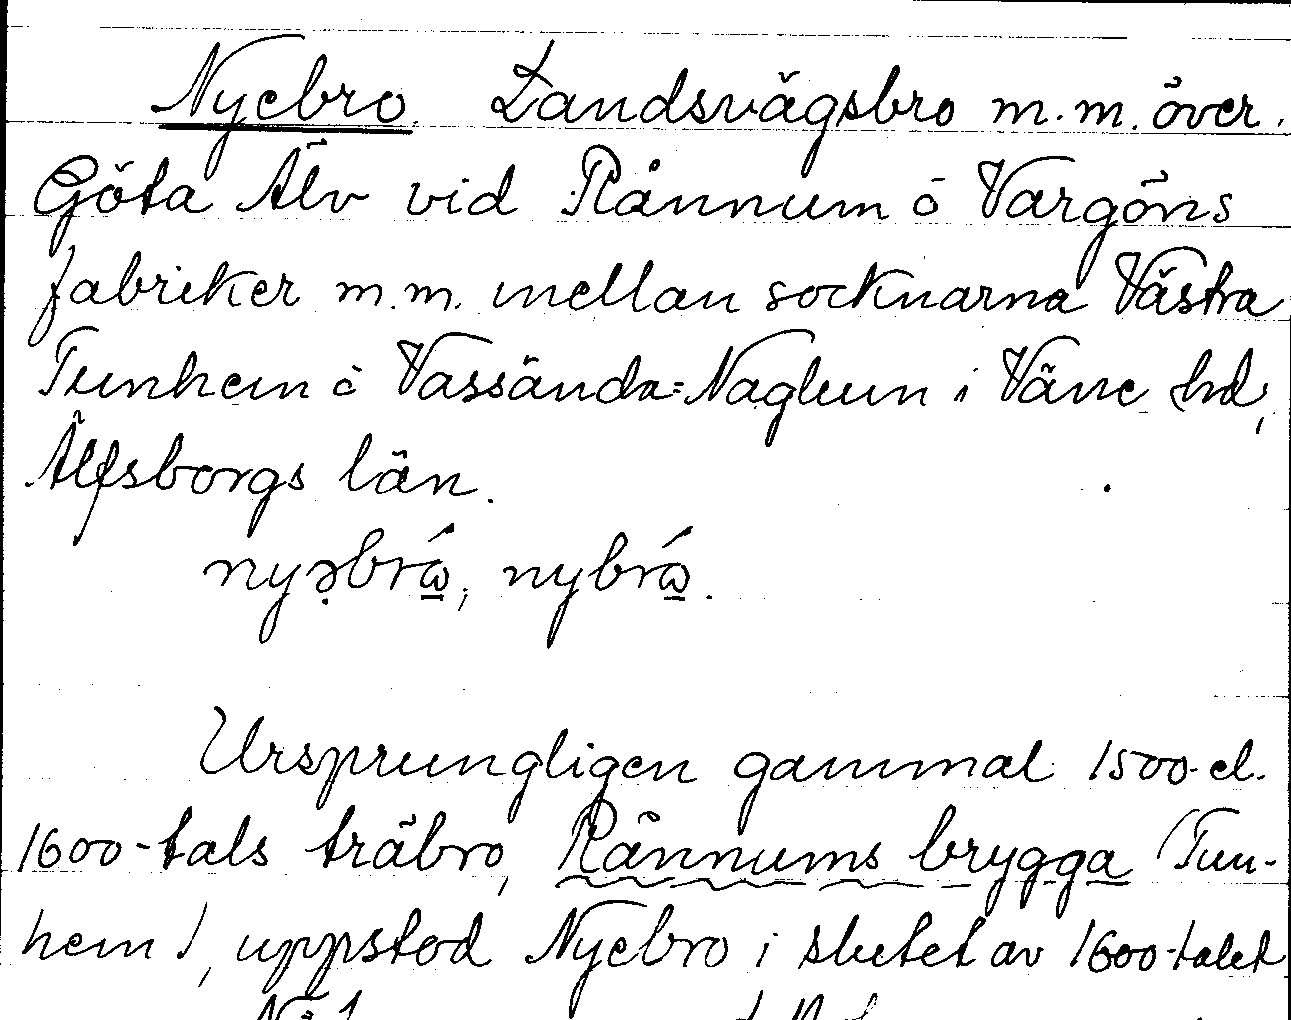 Nyebro. Landsvägsbro m.m. över
Göta Älv vid Rånnum o Vargöns
fabriker m.m. mellan socknarna Västra
Tunhem o Vassända-Naglum i Väne hd,
Älfsborgs län.
nyəbrώ, nybrώ.
Ursprungligen gammal 1500- el.
1600-tals träbro, Rånnums brygga (Tun-
hem), uppstod Nyebro i slutet av 1600-talet